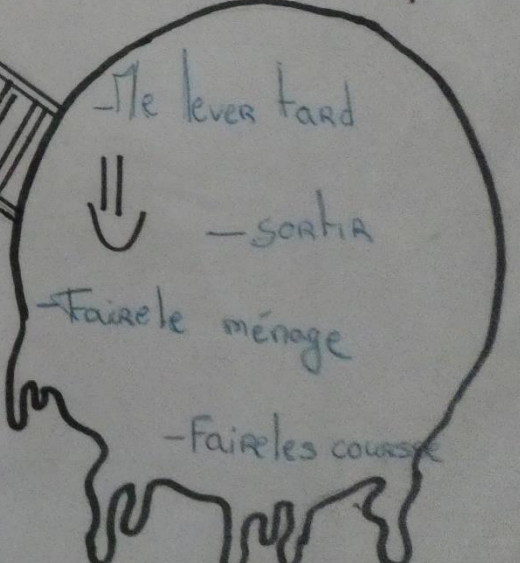 -Me lever tard
-sortir
-Faire le ménage
-Faire les course